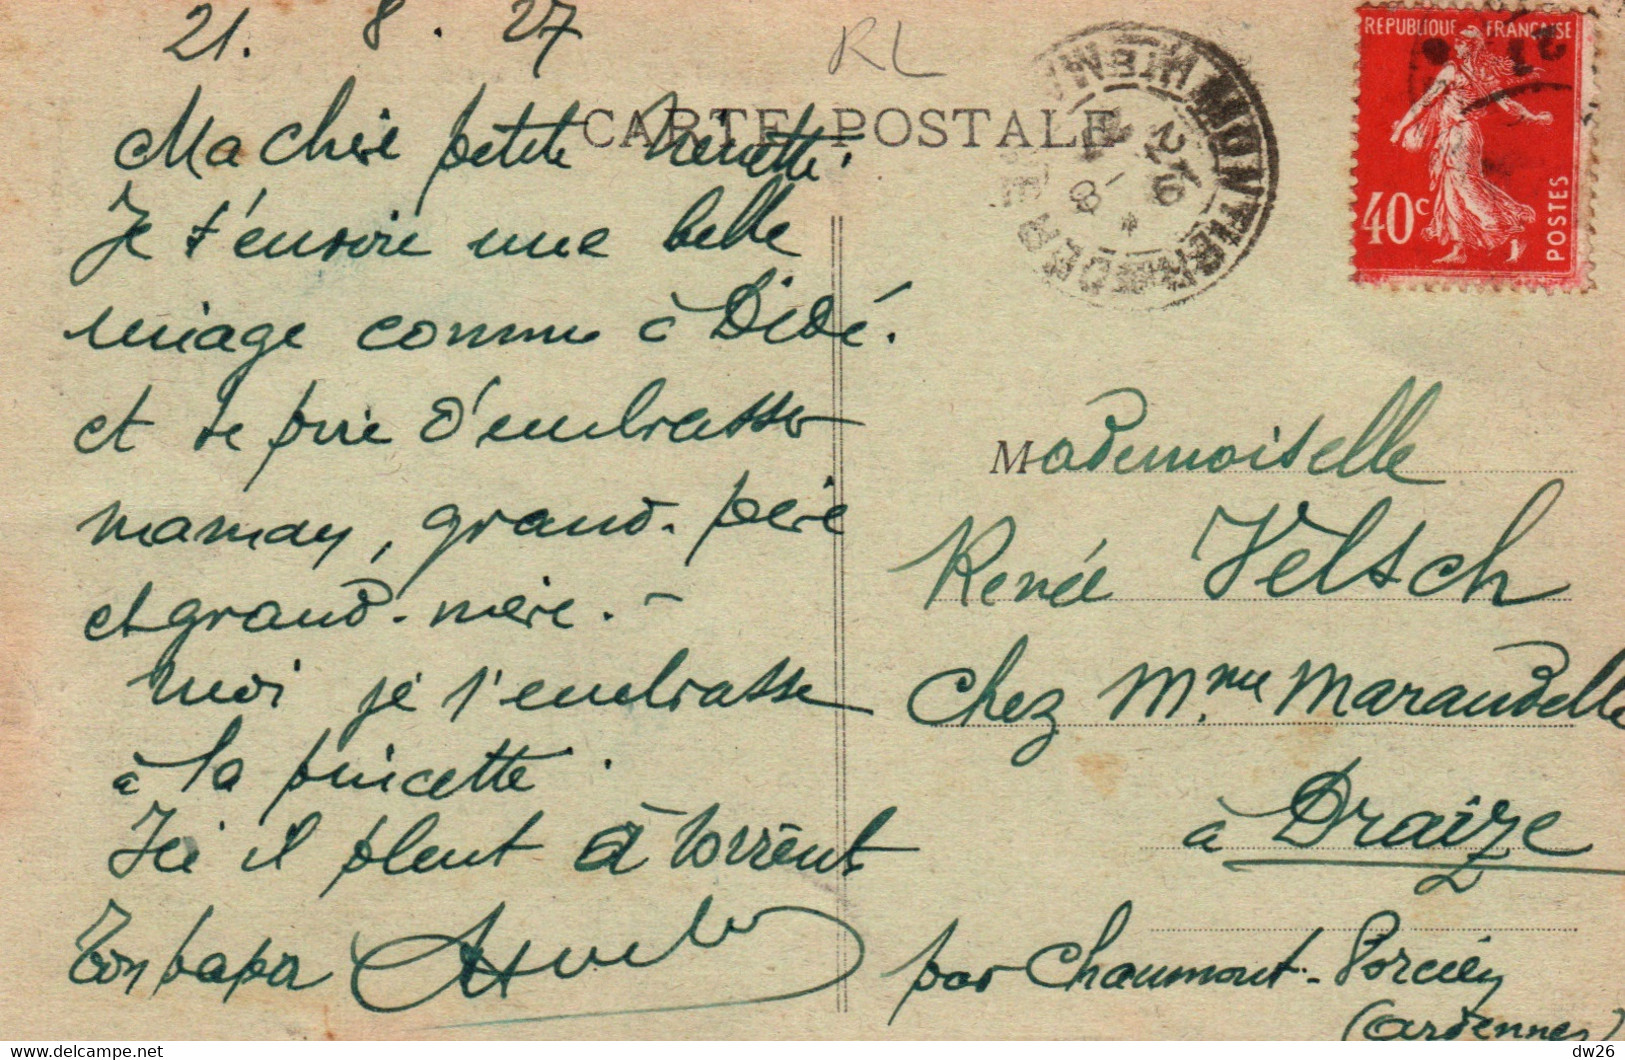 21. 8. 27
RL
CARTE POSTALE
REPUBLIQUE FRANÇAISE
40c
POSTES
Ma chère petite Nénette.
Je t'envoie une belle
image comme à Dédé.
et te prie d'embrasser
maman, grand-père
et grand-mère. -
Moi je t'embrasse
à la pincette.
Ici il pleut à torrent
Ton papa
Mademoiselle
Renée Velsch
Chez Mme Maraudelle
à Draize
par Chaumont-Porcien
(Ardennes)
dw26